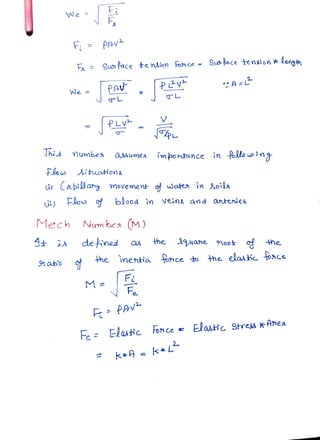 We = √(Fi/Fs)
Fi = ρAV²
Fs = Surface tension Force = Surface tension * length
We = √(ρAV²/σL) = √(ρL²V²/σL) ∵ A = L²
= √(ρLV²/σ) = V/√(σ/ρL)
This number assumes importance in following
flow situations
(i) Capillary movement of water in soils
(ii) Flow of blood in veins and arteries
Mech Number (M)
It is defined as the square root of the
ratio of the inertia force to the elastic force
M = √(Fi/Fe)
Fi = ρAV²
Fe = Elastic Force = Elastic Stress * Area
= K*A = K*L²